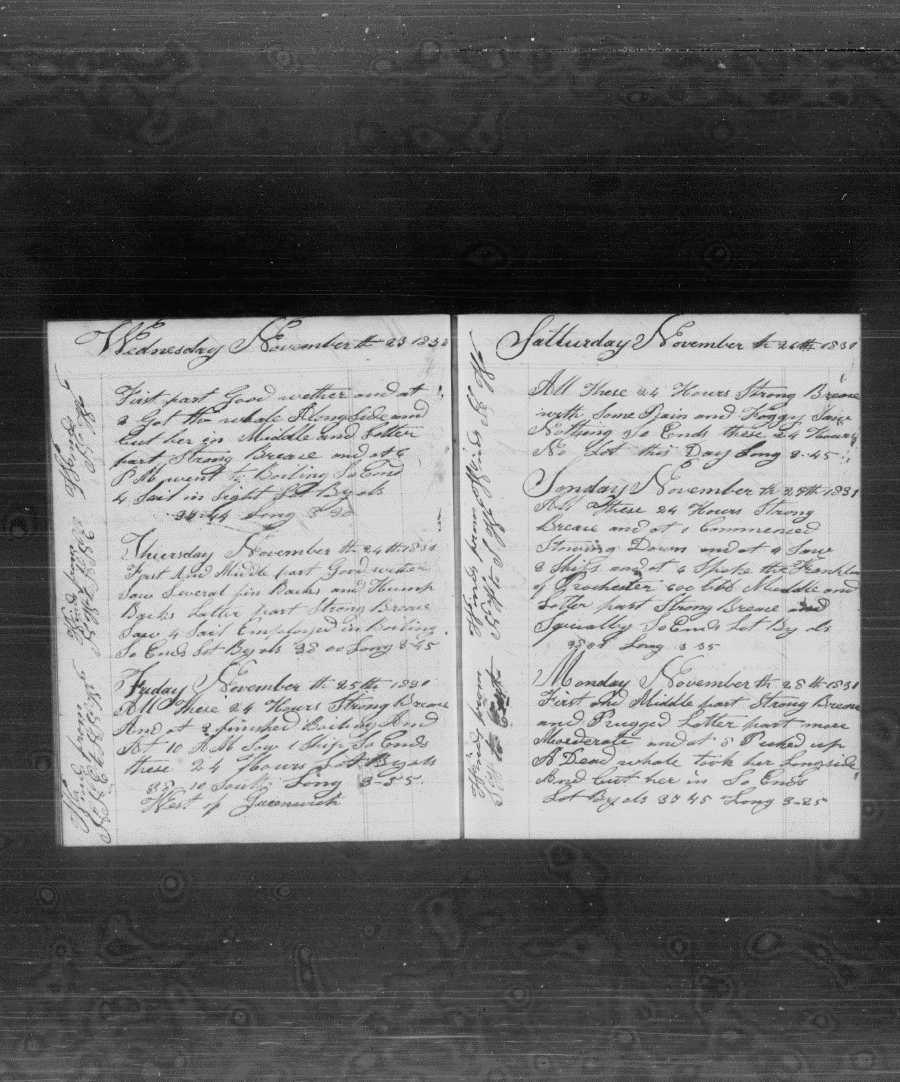 Wednesday November th 23 1831
First part Good wether and at
2 Got the whale Alongside and
Cut her in Middle and Latter
part Strong Breaze and at 6
P M went to Boiling So End
4 Sail in Sight Lat By obs
Long 3
Thursday November th 24 th 1831
First And Middle part Good wether
Saw Several fin Backs and Hump
Backs Latter part Strong Breaze
Saw 4 Sail Employed in Boiling
So Ends Lat By obs 38 00 Long 3-45
Friday November th 25th 1831
All These 24 Hours Strong Breaze
And at 2 finished Boiling And
At 10 A M Saw 1 Ship So Ends
these 24 Hours Lat By obs
38 10 South Long 3-55
West of Greenwich
Wind from
Wind from
Wind
Satturday November th 26 th 1831
All These 24 Hours Strong Breaze
with Some Rain and Foggy Saw
Nothing So Ends these 24 Hours
No Lat this Day Long 3-45
Sonday November th 27th 1831
All These 24 Hours Strong
Breaze and at 1 Commenced
Stowing Down and at 4 Saw
3 Ships and at 6 Spoke the Franklin
of Rochester 600 bbb Middle and
Latter part Strong Breaze and
Squally So Ends Lat By obs
Long 3 35
Monday November th 28 th 1831
First and Middle part Strong Breaze
and Rugged Latter part more
Moederate and at 8 Picked up
A Dead whale took her Longside
And Cut her in So Ends
Lat By obs 37 45 Long 3-25
Winds from
Winds from
Winds